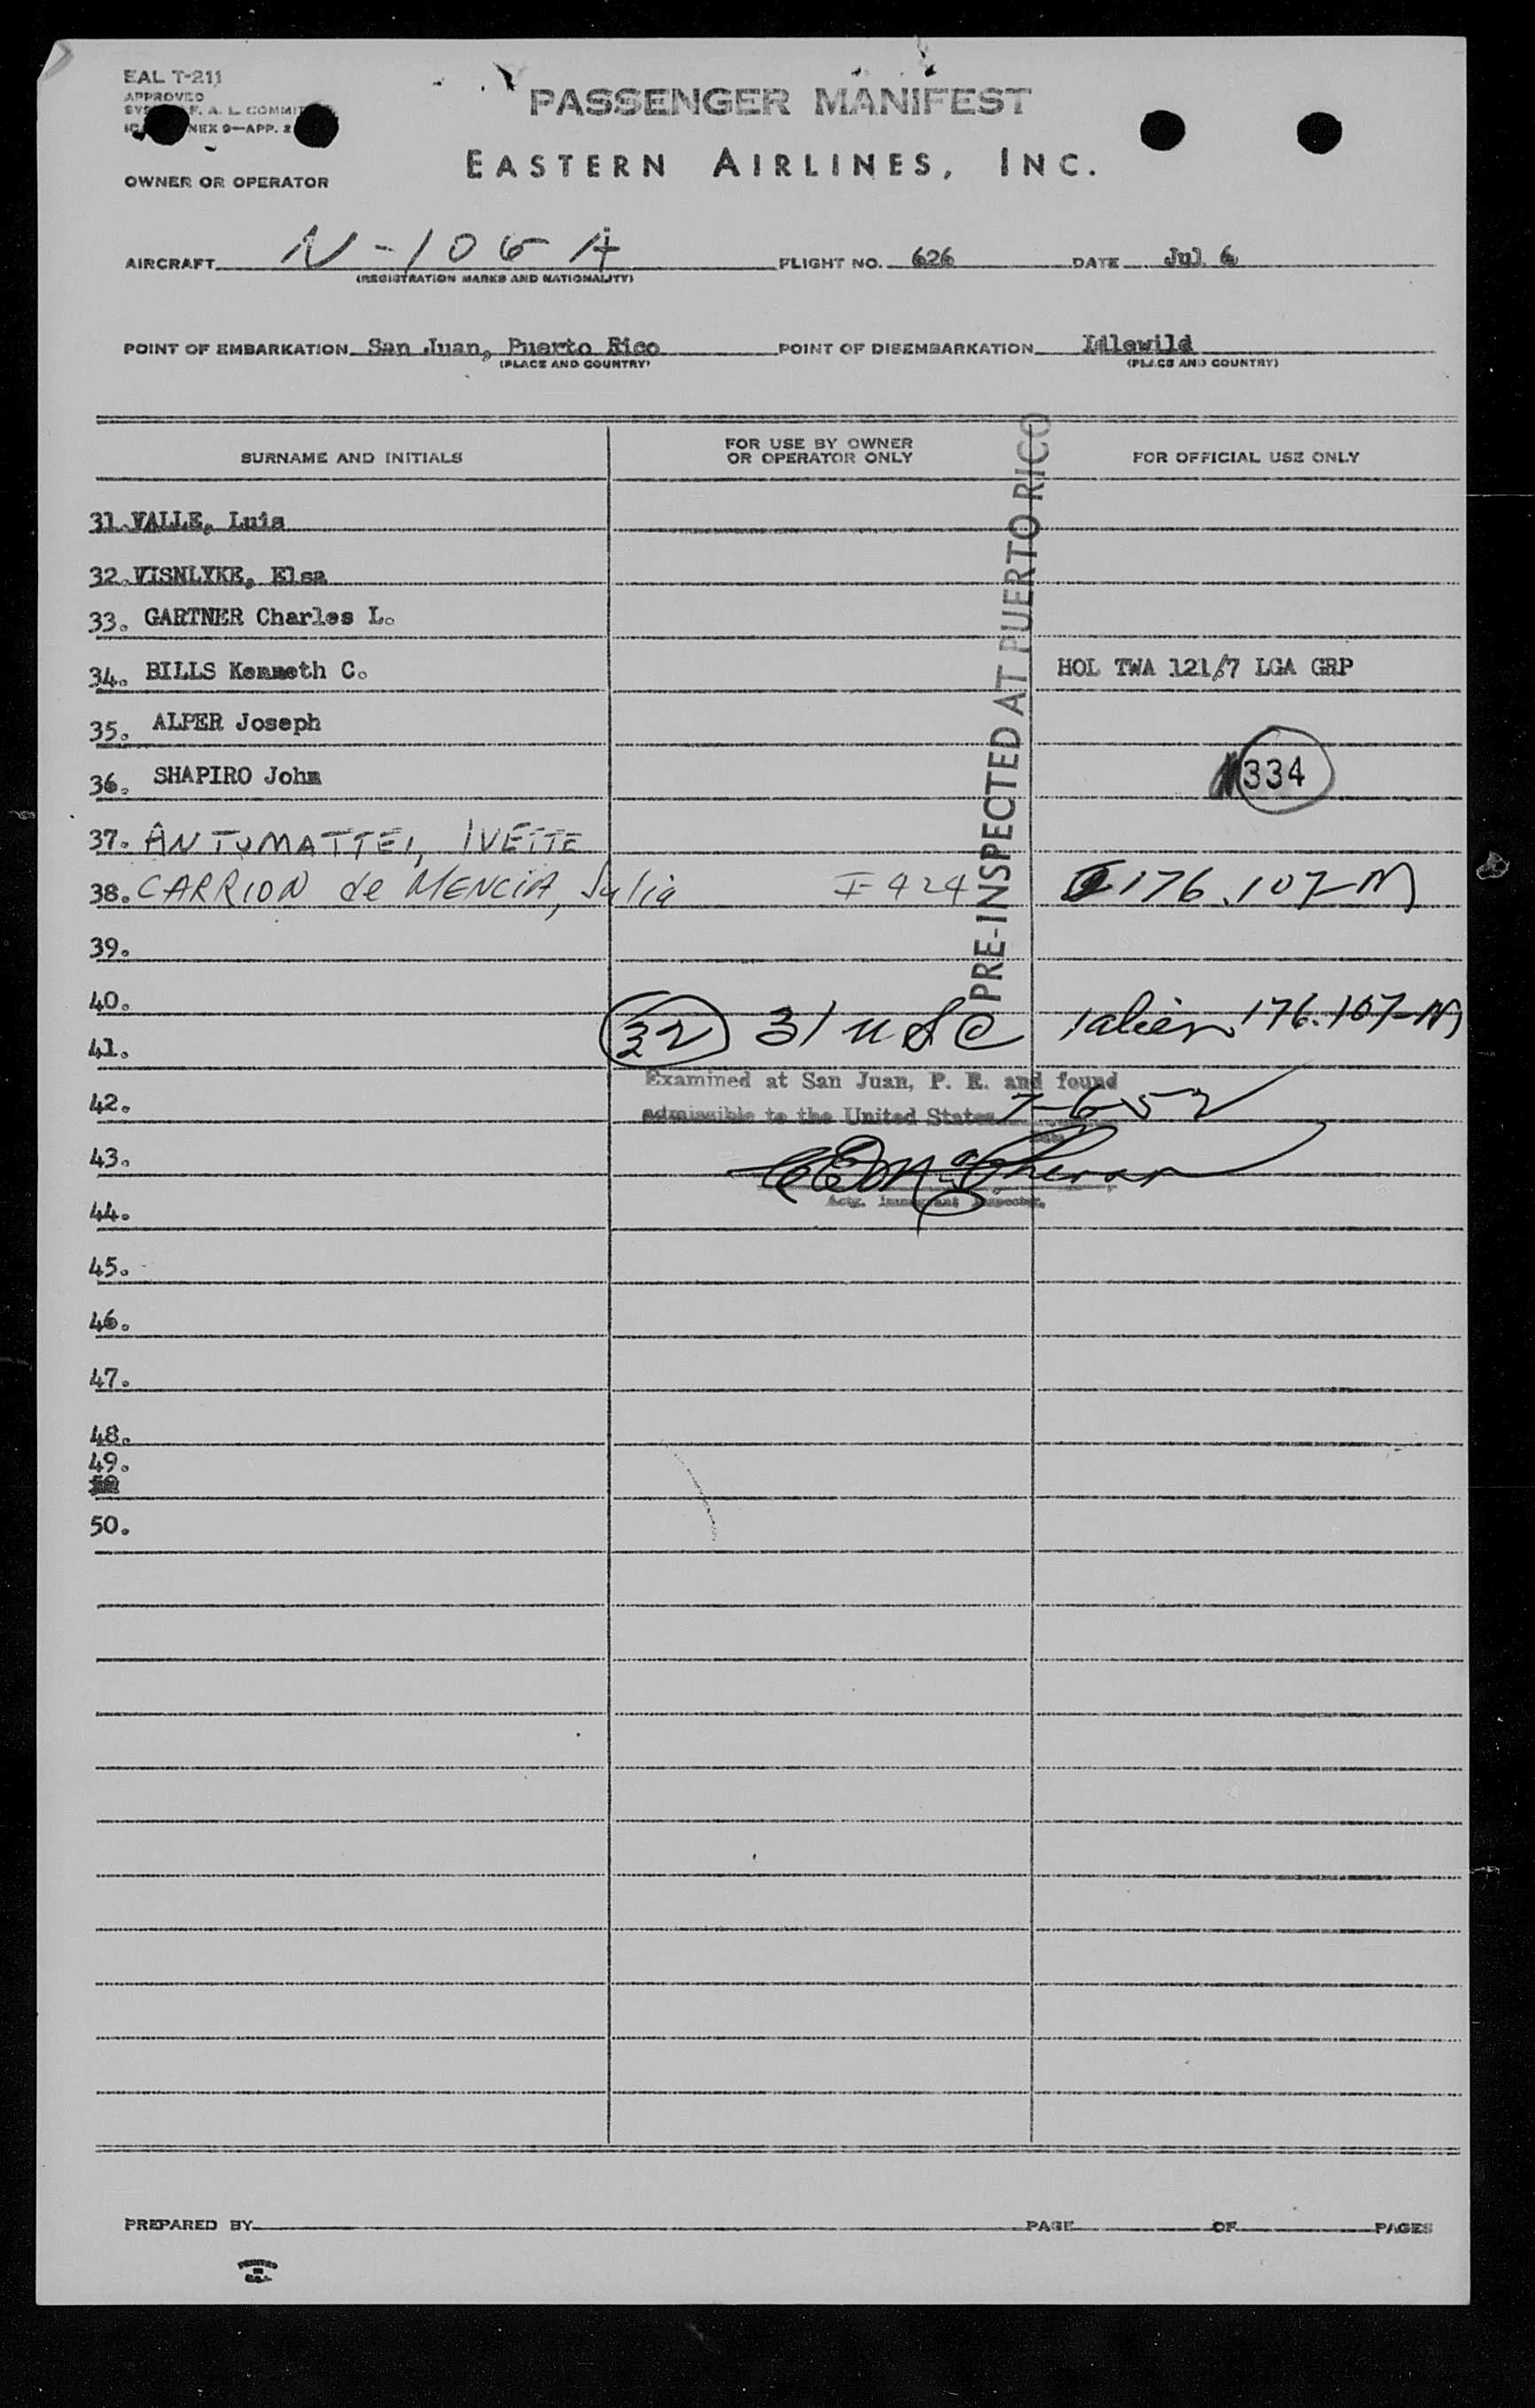 EAL T-211
APPROVED
F. A. L. COMMIT
NEX 9—APP. 2
PASSENGER MANIFEST
EASTERN AIRLINES, INC.
OWNER OR OPERATOR
AIRCRAFT N-106A FLIGHT NO. 626 DATE Jul 6
(REGISTRATION MARKS AND NATIONALITY)
POINT OF EMBARKATION San Juan, Puerto Rico POINT OF DISEMBARKATION Idlewild
(PLACE AND COUNTRY) (PLACE AND COUNTRY)
SURNAME AND INITIALS FOR USE BY OWNER OR OPERATOR ONLY FOR OFFICIAL USE ONLY
PRE-INSPECTED AT PUERTO RICO
31. VALLE, Luis
32. VISNLYKE, Elsa
33. GARTNER Charles L.
34. BILLS Kenneth C. HOL TWA 121/7 LGA GRP
35. ALPER Joseph
36. SHAPIRO John 334
37. ANTUMATTEI, IVETTE
38. CARRION de MENCIA, Julia I-424 176.107-M
39.
40.
32 31 USC 1 alien 176.107-M
41.
Examined at San Juan, P. R. and found
42.
admissible to the United States 7-6-52
43.
Actg. Immigrant Inspector.
44.
45.
46.
47.
48.
49.
50.
PREPARED BY PAGE OF PAGES